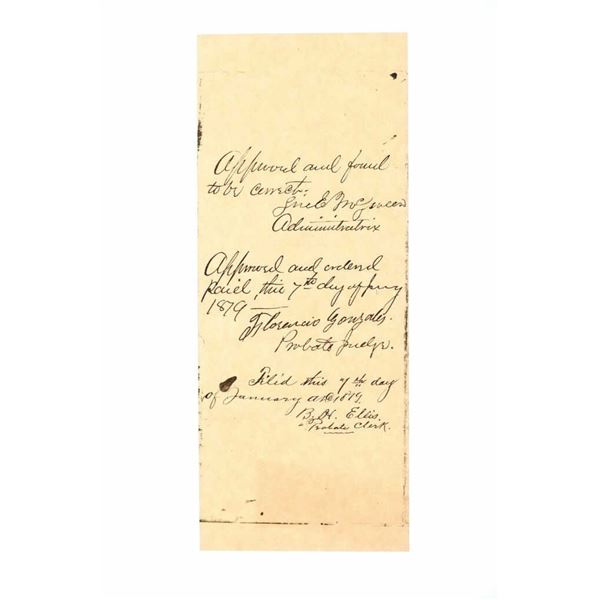 Approved and found
to be correct.
Sue E McSween
Administratrix
Approved and ordered
paid, this 7th day of Jany
1879 —
Florencio Gonzales.
Probate Judge.
Filed this 7th day
of January AD 1879.
B. H. Ellis.
Probate Clerk.